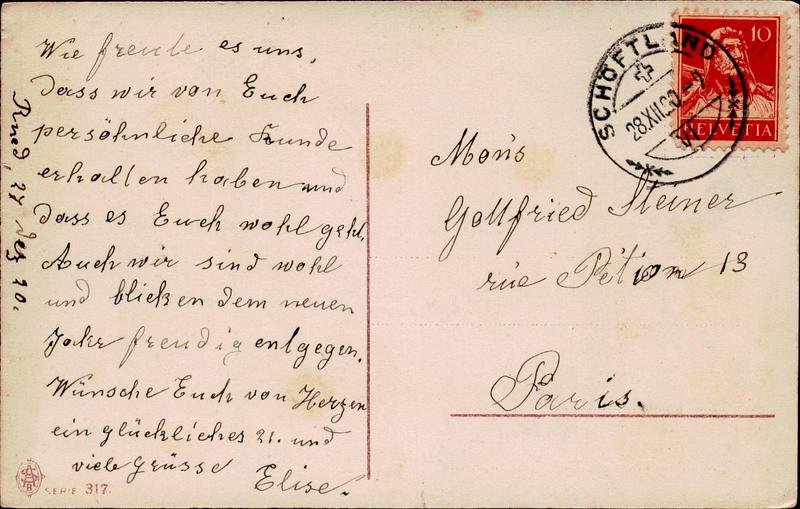 Wie freute es uns,
dass wir von Euch
persöhnliche Kunde
erhalten haben und
dass es Euch wohl geht.
Auch wir sind wohl
und blicken dem neuen
Jahr freudig entgegen.
Wünsche Euch von Herzen
ein glückliches 21. und
viele Grüsse
Elise.
Rued, 27 Dez 20.
SERIE 317.
SCHÖFTLAND
28.XII.20.-2
VI
10
HELVETIA
Mons
Gottfried Steiner
rue Pétion 13
Paris.